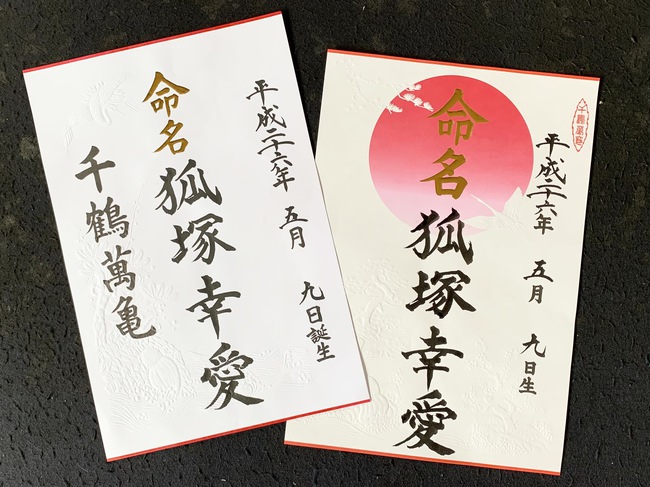 平成二十六年 五月 九日誕生
命名 狐塚幸愛
千鶴萬亀
千鶴萬亀
平成二十六年 五月 九日生
命名 狐塚幸愛